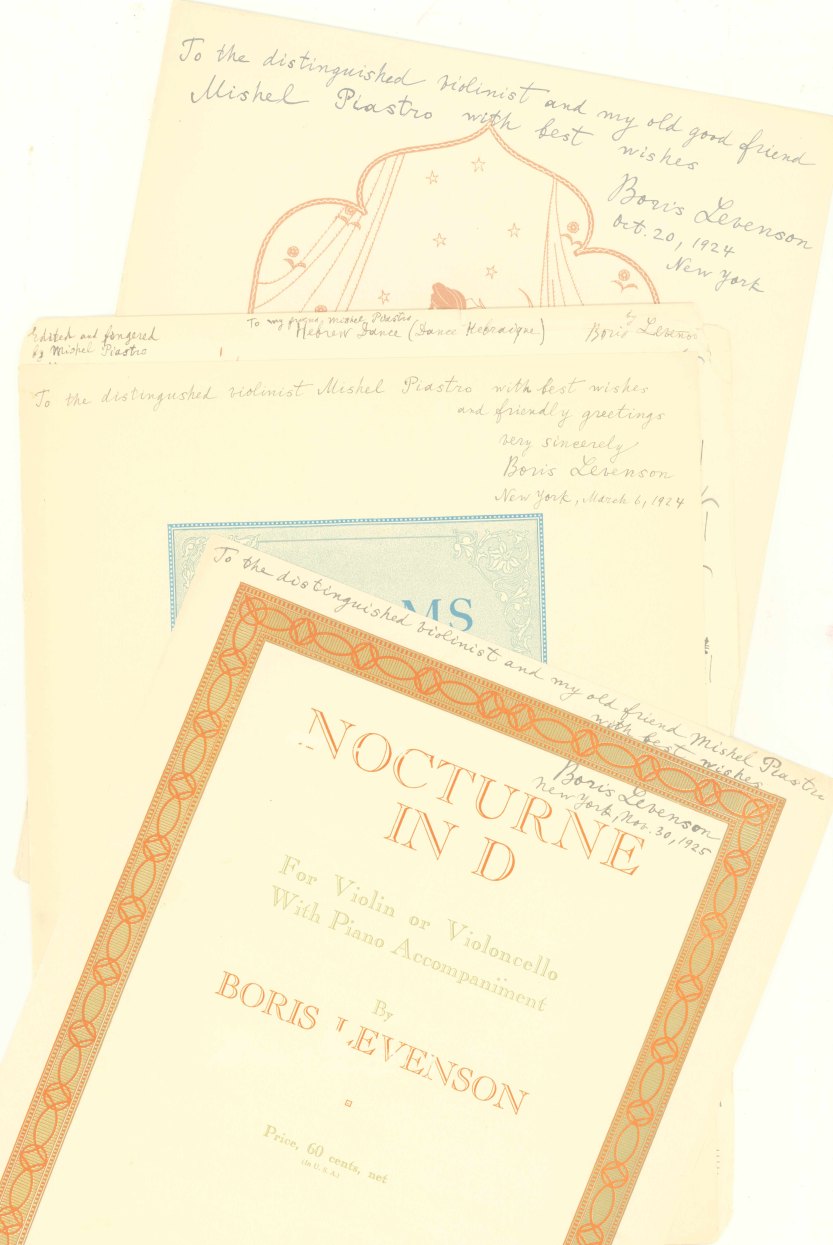 To the distinguished violinist and my old good friend
Mishel Piastro with best wishes
Boris Levenson
Oct. 20, 1924
New York
Edited and fingered
by Mishel Piastro
To my friend, Mishel Piastro
Hebrew Dance (Dance Hebraique)
by
Boris Levenson
To the distingushed violinist Mishel Piastro with best wishes
and friendly greetings
very sincerely
Boris Levenson
New York, March 6, 1924
MS
To the distinguished violinist and my old friend Mishel Piastro
with best wishes
Boris Levenson
New York, Nov. 30, 1925
NOCTURNE
IN D
For Violin or Violoncello
With Piano Accompaniment
By
BORIS LEVENSON
Price, 60 cents, net
(In U.S.A.)